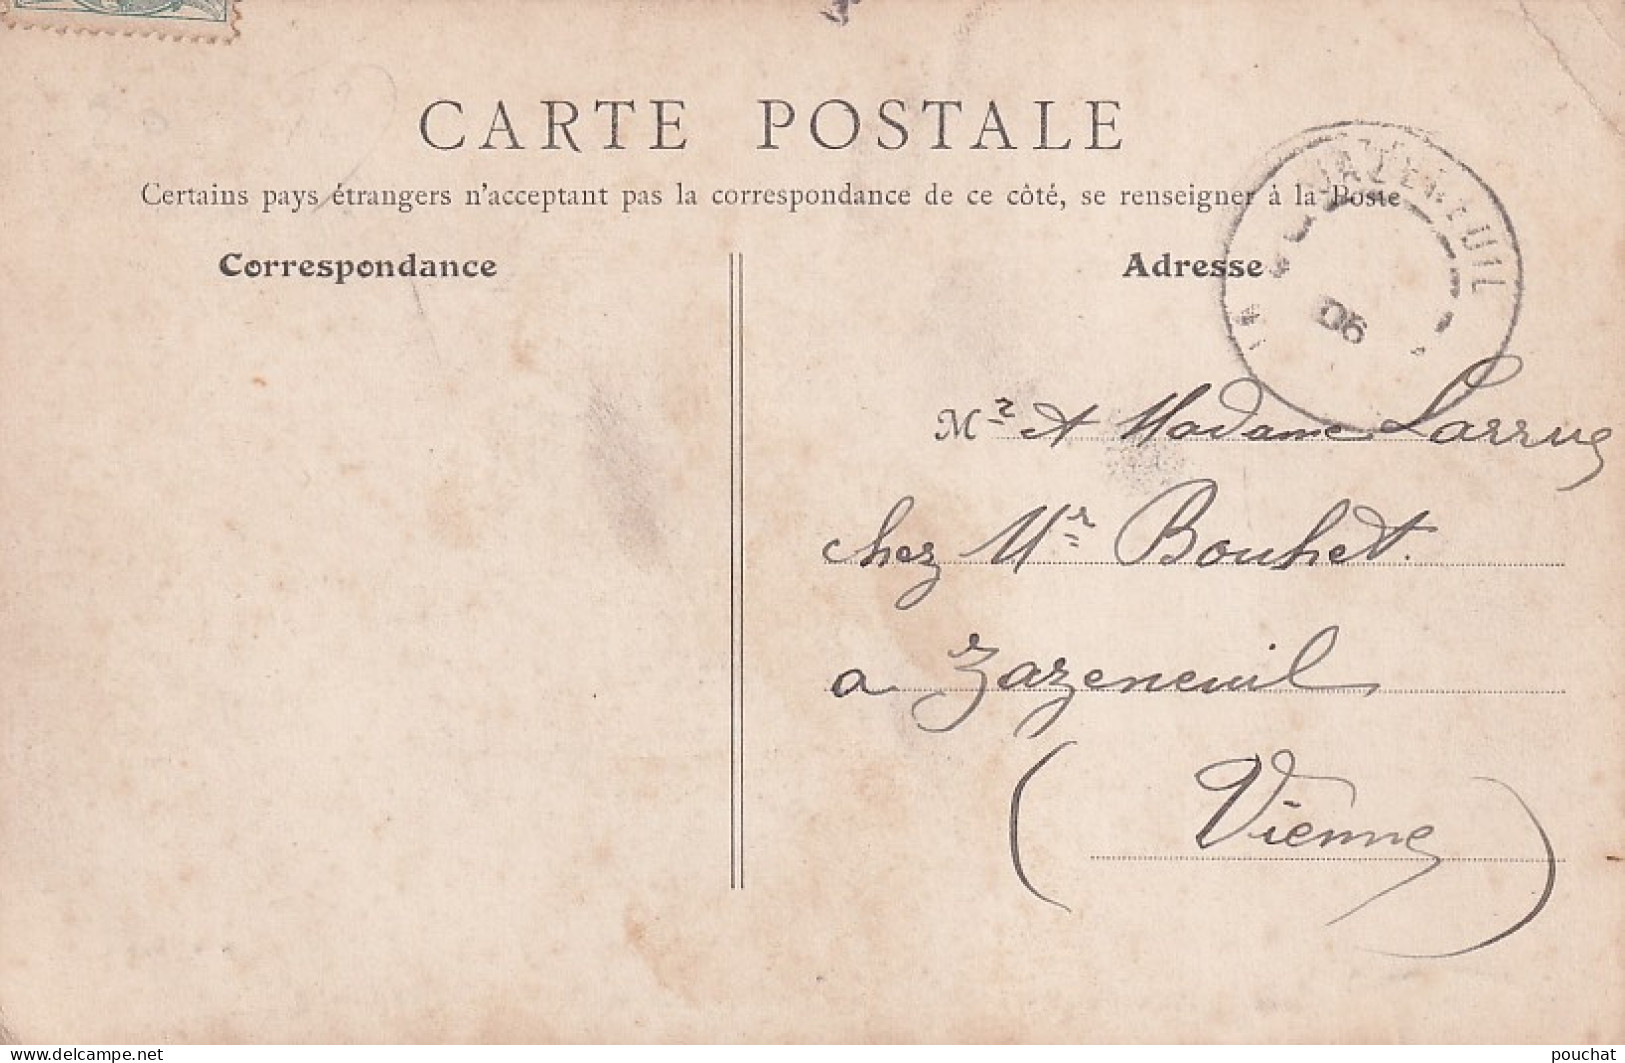 CARTE POSTALE
Certains pays étrangers n'acceptant pas la correspondance de ce côté, se renseigner à la Poste
Correspondance
Adresse
JAZENEUIL
06
Mr et Madame Larrue
chez Mr Bouhet.
a Jazeneuil
(Vienne)
www.delcampe.net
pouchat